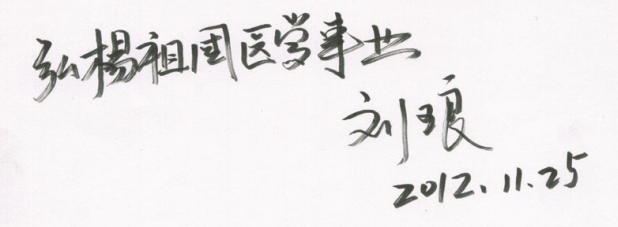 弘楊祖国医学事业
刘琅
2012.11.25